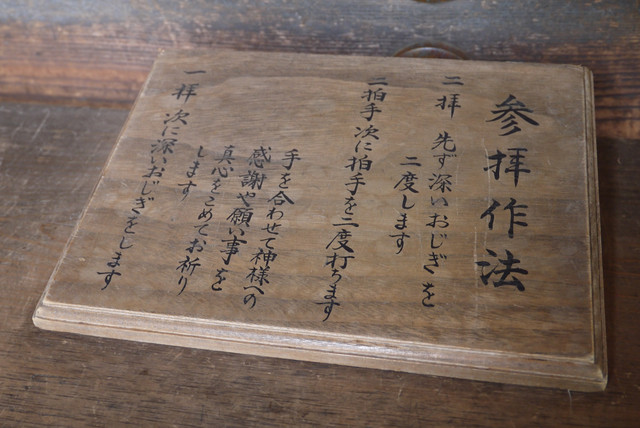 参拝作法
二拝 先ず深いおじぎを
二度します
二拍手 次に拍手を二度打ちます
手を合わせて神様への
感謝や願い事を
真心をこめてお祈り
します
一拝 次に深いおじぎをします